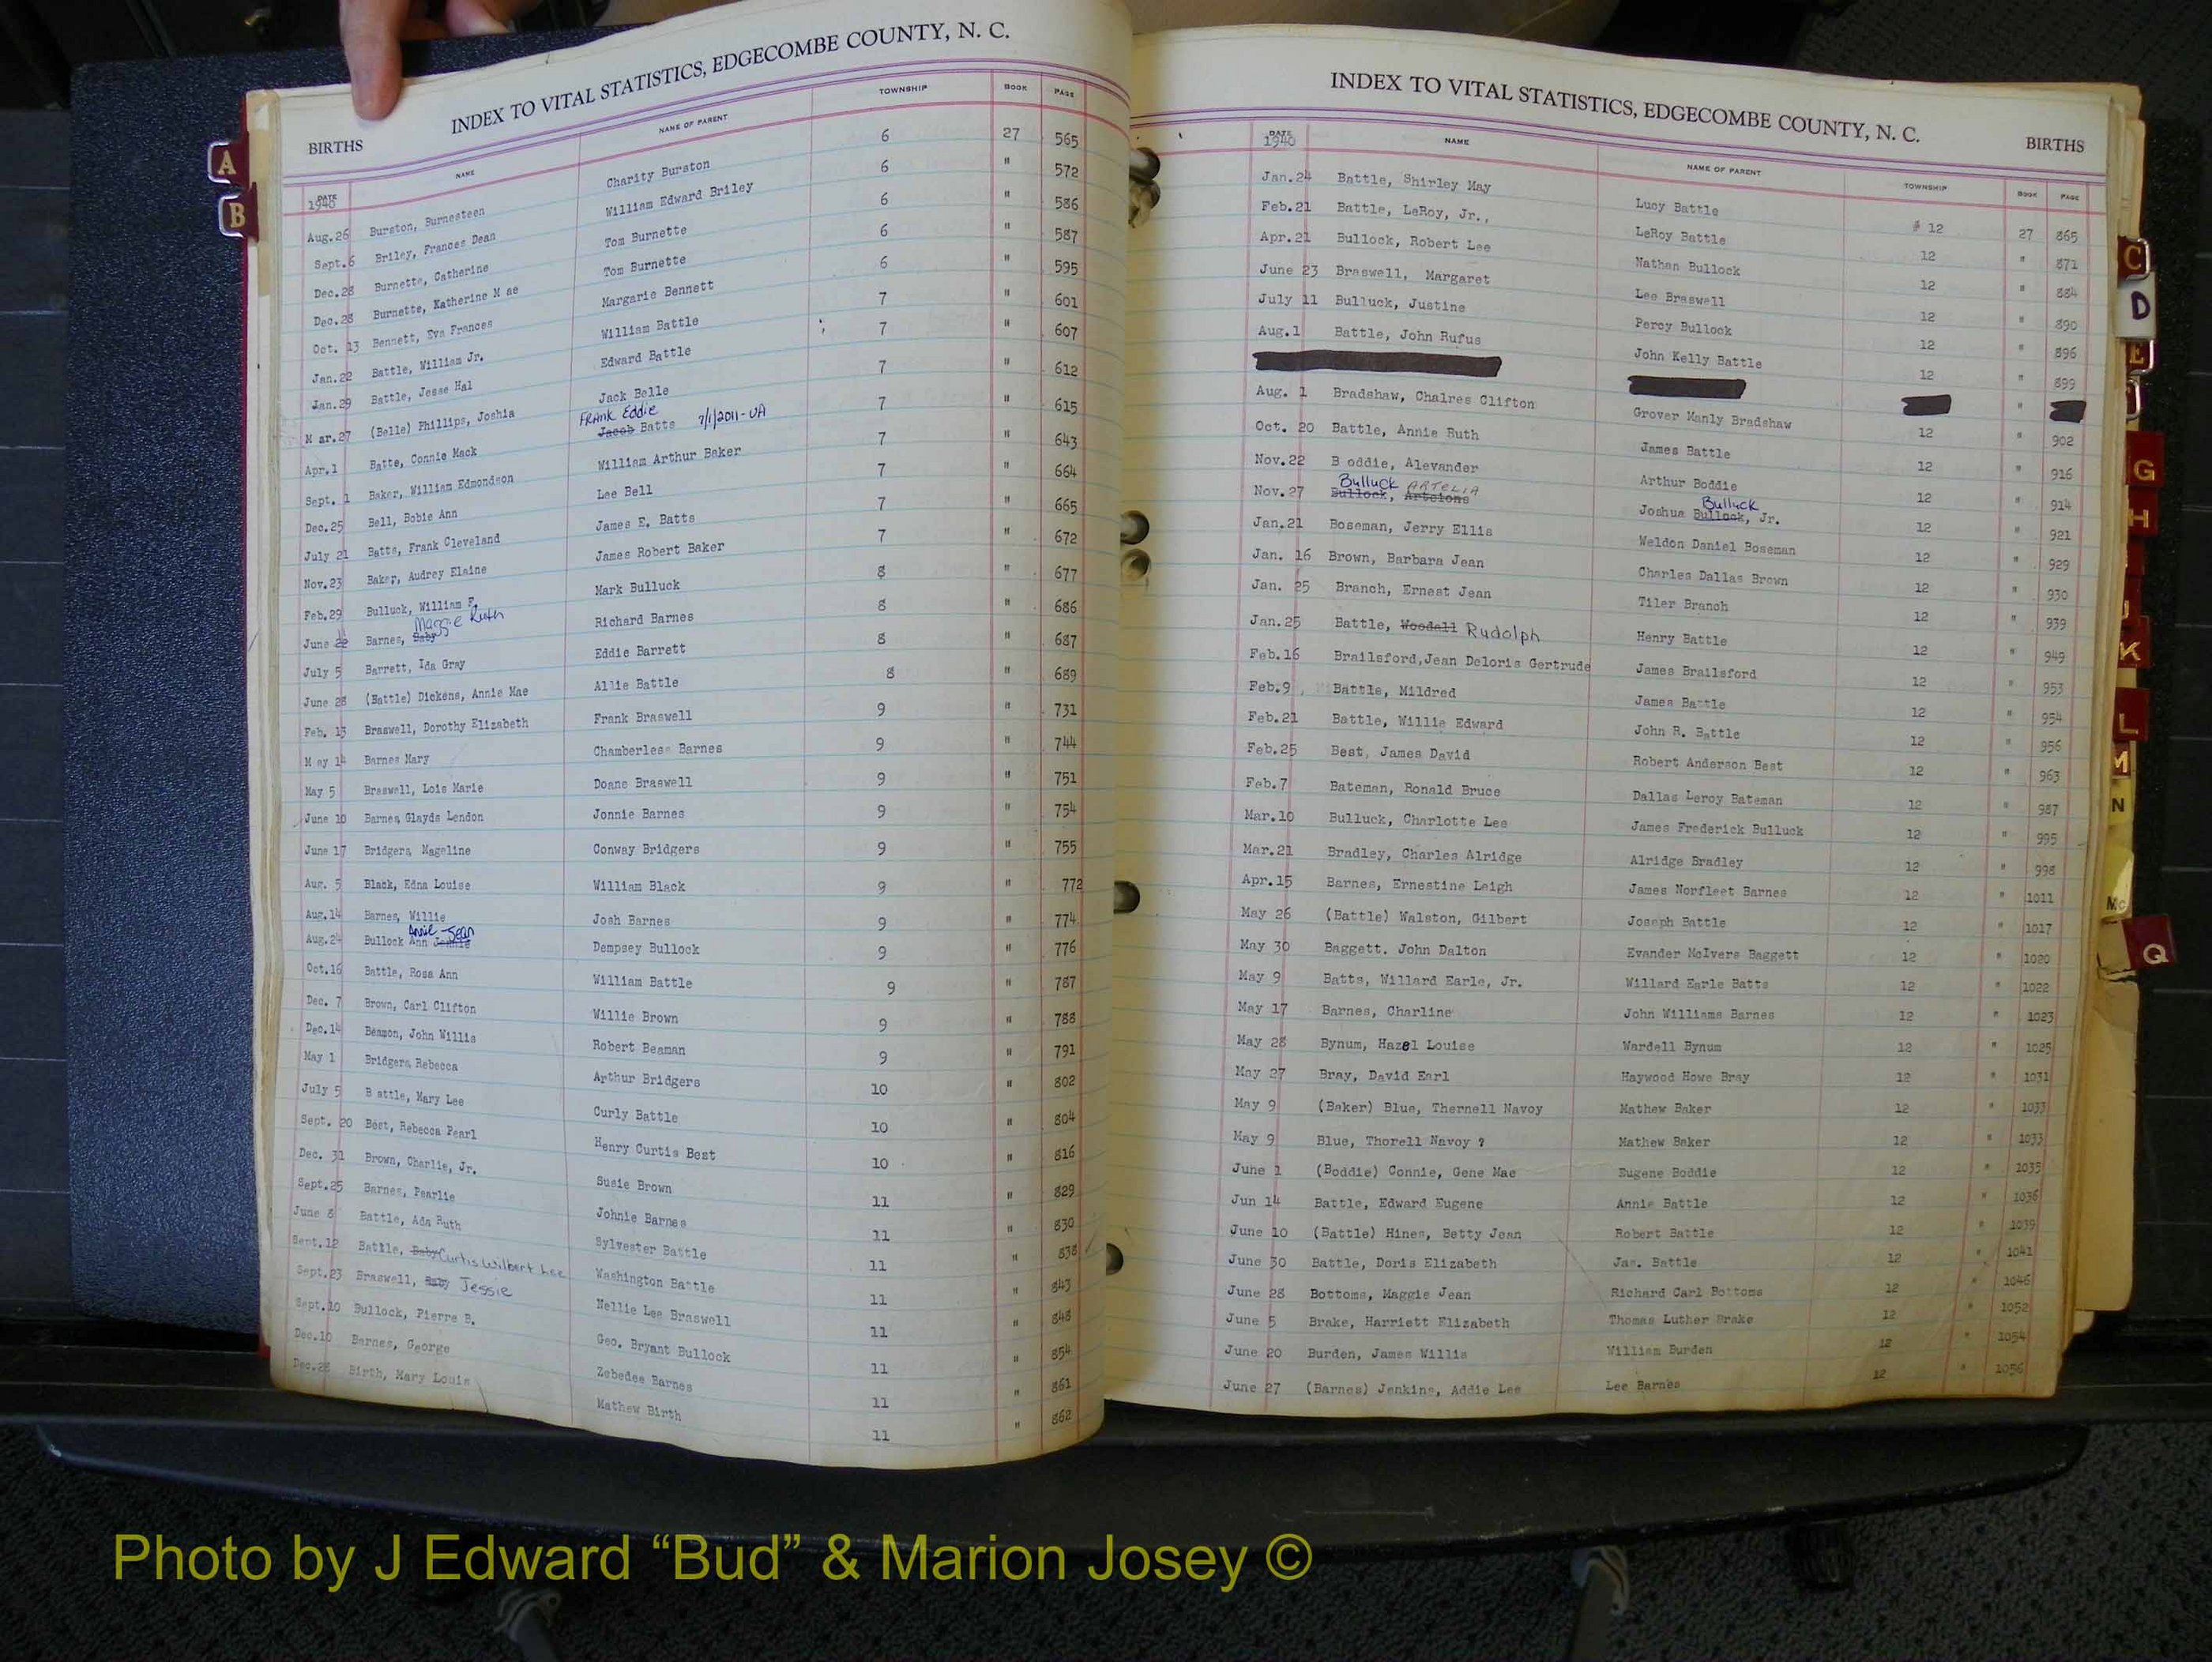 INDEX TO VITAL STATISTICS, EDGECOMBE COUNTY, N. C.
BIRTHS
DATE NAME NAME OF PARENT TOWNSHIP BOOK PAGE
1940
Aug.26 Burston, Burnesteen Charity Burston 6 27 565
Sept.6 Briley, Frances Dean William Edward Briley 6 " 572
Dec.28 Burnette, Catherine Tom Burnette 6 " 586
Dec.28 Burnette, Katherine M ae Tom Burnette 6 " 587
Oct. 13 Bennett, Eva Frances Margarie Bennett 6 " 595
Jan.22 Battle, William Jr. William Battle 7 " 601
Jan.29 Battle, Jesse Hal Edward Battle 7 " 607
M ar.27 (Belle) Phillips, Joshia Jack Belle 7 " 612
FRANK Eddie
Apr.1 Batts, Connie Mack Jacob Batts 7/1/2011-UA 7 " 615
Sept. 1 Baker, William Edmondson William Arthur Baker 7 " 643
Dec.25 Bell, Bobie Ann Lee Bell 7 " 664
July 21 Batts, Frank Cleveland James E. Batts 7 " 665
Nov.23 Baker, Audrey Elaine James Robert Baker 7 " 672
Feb.29 Bulluck, William F. Mark Bulluck 8 " 677
Maggie Ruth
June 22 Barnes, Baby Richard Barnes 8 " 686
July 5 Barrett, Ida Gray Eddie Barrett 8 " 687
June 28 (Battle) Dickens, Annie Mae Allie Battle 8 " 689
Feb. 13 Braswell, Dorothy Elizabeth Frank Braswell 9 " 731
M ay 14 Barnes Mary Chamberless Barnes 9 " 744
May 5 Braswell, Lois Marie Doane Braswell 9 " 751
June 10 Barnes, Glayds Lendon Jonnie Barnes 9 " 754
June 17 Bridgers, Mageline Conway Bridgers 9 " 755
Aug. 5 Black, Edna Louise William Black 9 " 772
Aug.14 Barnes, Willie Josh Barnes 9 " 774
Annie Jean
Aug.24 Bullock Ann Jennie Dempsey Bullock 9 " 776
Oct.16 Battle, Rosa Ann William Battle 9 " 787
Dec. 7 Brown, Carl Clifton Willie Brown 9 " 788
Dec.14 Beamon, John Willis Robert Beaman 9 " 791
May 1 Bridgers Rebecca Arthur Bridgers 10 " 802
July 5 B attle, Mary Lee Curly Battle 10 " 804
Sept. 20 Best, Rebecca Pearl Henry Curtis Best 10 " 816
Dec. 31 Brown, Charlie, Jr. Susie Brown 11 " 829
Sept.25 Barnes, Pearlie Johnie Barnes 11 " 830
June 8 Battle, Ada Ruth Sylvester Battle 11 " 838
Sept.12 Battle, Baby Curtis Wilbert Lee Washington Battle 11 " 843
Sept.23 Braswell, Baby Jessie Nellie Lee Braswell 11 " 848
Sept.10 Bullock, Pierre B. Geo. Bryant Bullock 11 " 854
Dec.10 Barnes, George Zebedee Barnes 11 " 861
Dec.28 Birth, Mary Louis Mathew Birth 11 " 862
INDEX TO VITAL STATISTICS, EDGECOMBE COUNTY, N. C.
BIRTHS
DATE NAME NAME OF PARENT TOWNSHIP BOOK PAGE
1940
Jan.24 Battle, Shirley May Lucy Battle # 12 27 865
Feb.21 Battle, LeRoy, Jr., LeRoy Battle 12 " 871
Apr.21 Bullock, Robert Lee Nathan Bullock 12 " 884
June 23 Braswell, Margaret Lee Braswell 12 " 890
July 11 Bulluck, Justine Percy Bullock 12 " 896
Aug.1 Battle, John Rufus John Kelly Battle 12 " 899
"
Aug. 1 Bradshaw, Chalres Clifton Grover Manly Bradshaw 12 " 902
Oct. 20 Battle, Annie Ruth James Battle 12 " 916
Nov.22 B oddie, Alevander Arthur Boddie 12 " 914
Bulluck ARTELIA Bulluck
Nov.27 Bullock, Artelons Joshua Bullock, Jr. 12 " 921
Jan.21 Boseman, Jerry Ellis Weldon Daniel Boseman 12 " 929
Jan. 16 Brown, Barbara Jean Charles Dallas Brown 12 " 930
Jan. 25 Branch, Ernest Jean Tiler Branch 12 " 939
Jan.25 Battle, Woodall Rudolph Henry Battle 12 " 949
Feb.16 Brailsford,Jean Deloris Gertrude James Brailsford 12 " 953
Feb.9 Battle, Mildred James Battle 12 " 954
Feb.21 Battle, Willie Edward John R. Battle 12 " 956
Feb.25 Best, James David Robert Anderson Best 12 " 963
Feb.7 Bateman, Ronald Bruce Dallas Leroy Bateman 12 " 987
Mar.10 Bulluck, Charlotte Lee James Frederick Bulluck 12 " 995
Mar.21 Bradley, Charles Alridge Alridge Bradley 12 " 998
Apr.15 Barnes, Ernestine Leigh James Norfleet Barnes 12 " 1011
May 26 (Battle) Walston, Gilbert Joseph Battle 12 " 1017
May 30 Baggett. John Dalton Evander McIvers Baggett 12 " 1020
May 9 Batts, Willard Earle, Jr. Willard Earle Batts 12 " 1022
May 17 Barnes, Charline John Williams Barnes 12 " 1023
May 28 Bynum, Hazel Louise Wardell Bynum 12 " 1025
May 27 Bray, David Earl Haywood Howe Bray 12 " 1031
May 9 (Baker) Blue, Thernell Navoy Mathew Baker 12 " 1033
May 9 Blue, Thorell Navoy ? Mathew Baker 12 " 1033
June 1 (Boddie) Connie, Gene Mae Eugene Boddie 12 " 1035
Jun 14 Battle, Edward Eugene Annie Battle 12 " 1036
June 10 (Battle) Hines, Betty Jean Robert Battle 12 " 1039
June 30 Battle, Doris Elizabeth Jas. Battle 12 " 1041
June 28 Bottoms, Maggie Jean Richard Carl Bottoms 12 " 1046
June 5 Brake, Harriett Elizabeth Thomas Luther Brake 12 " 1052
June 20 Burden, James Willis William Burden 12 " 1054
June 27 (Barnes) Jenkins, Addie Lee Lee Barnes 12 " 1056
A
B
C
D
E
G
H
J
K
L
M
N
Mc
Q
Photo by J Edward “Bud” & Marion Josey ©